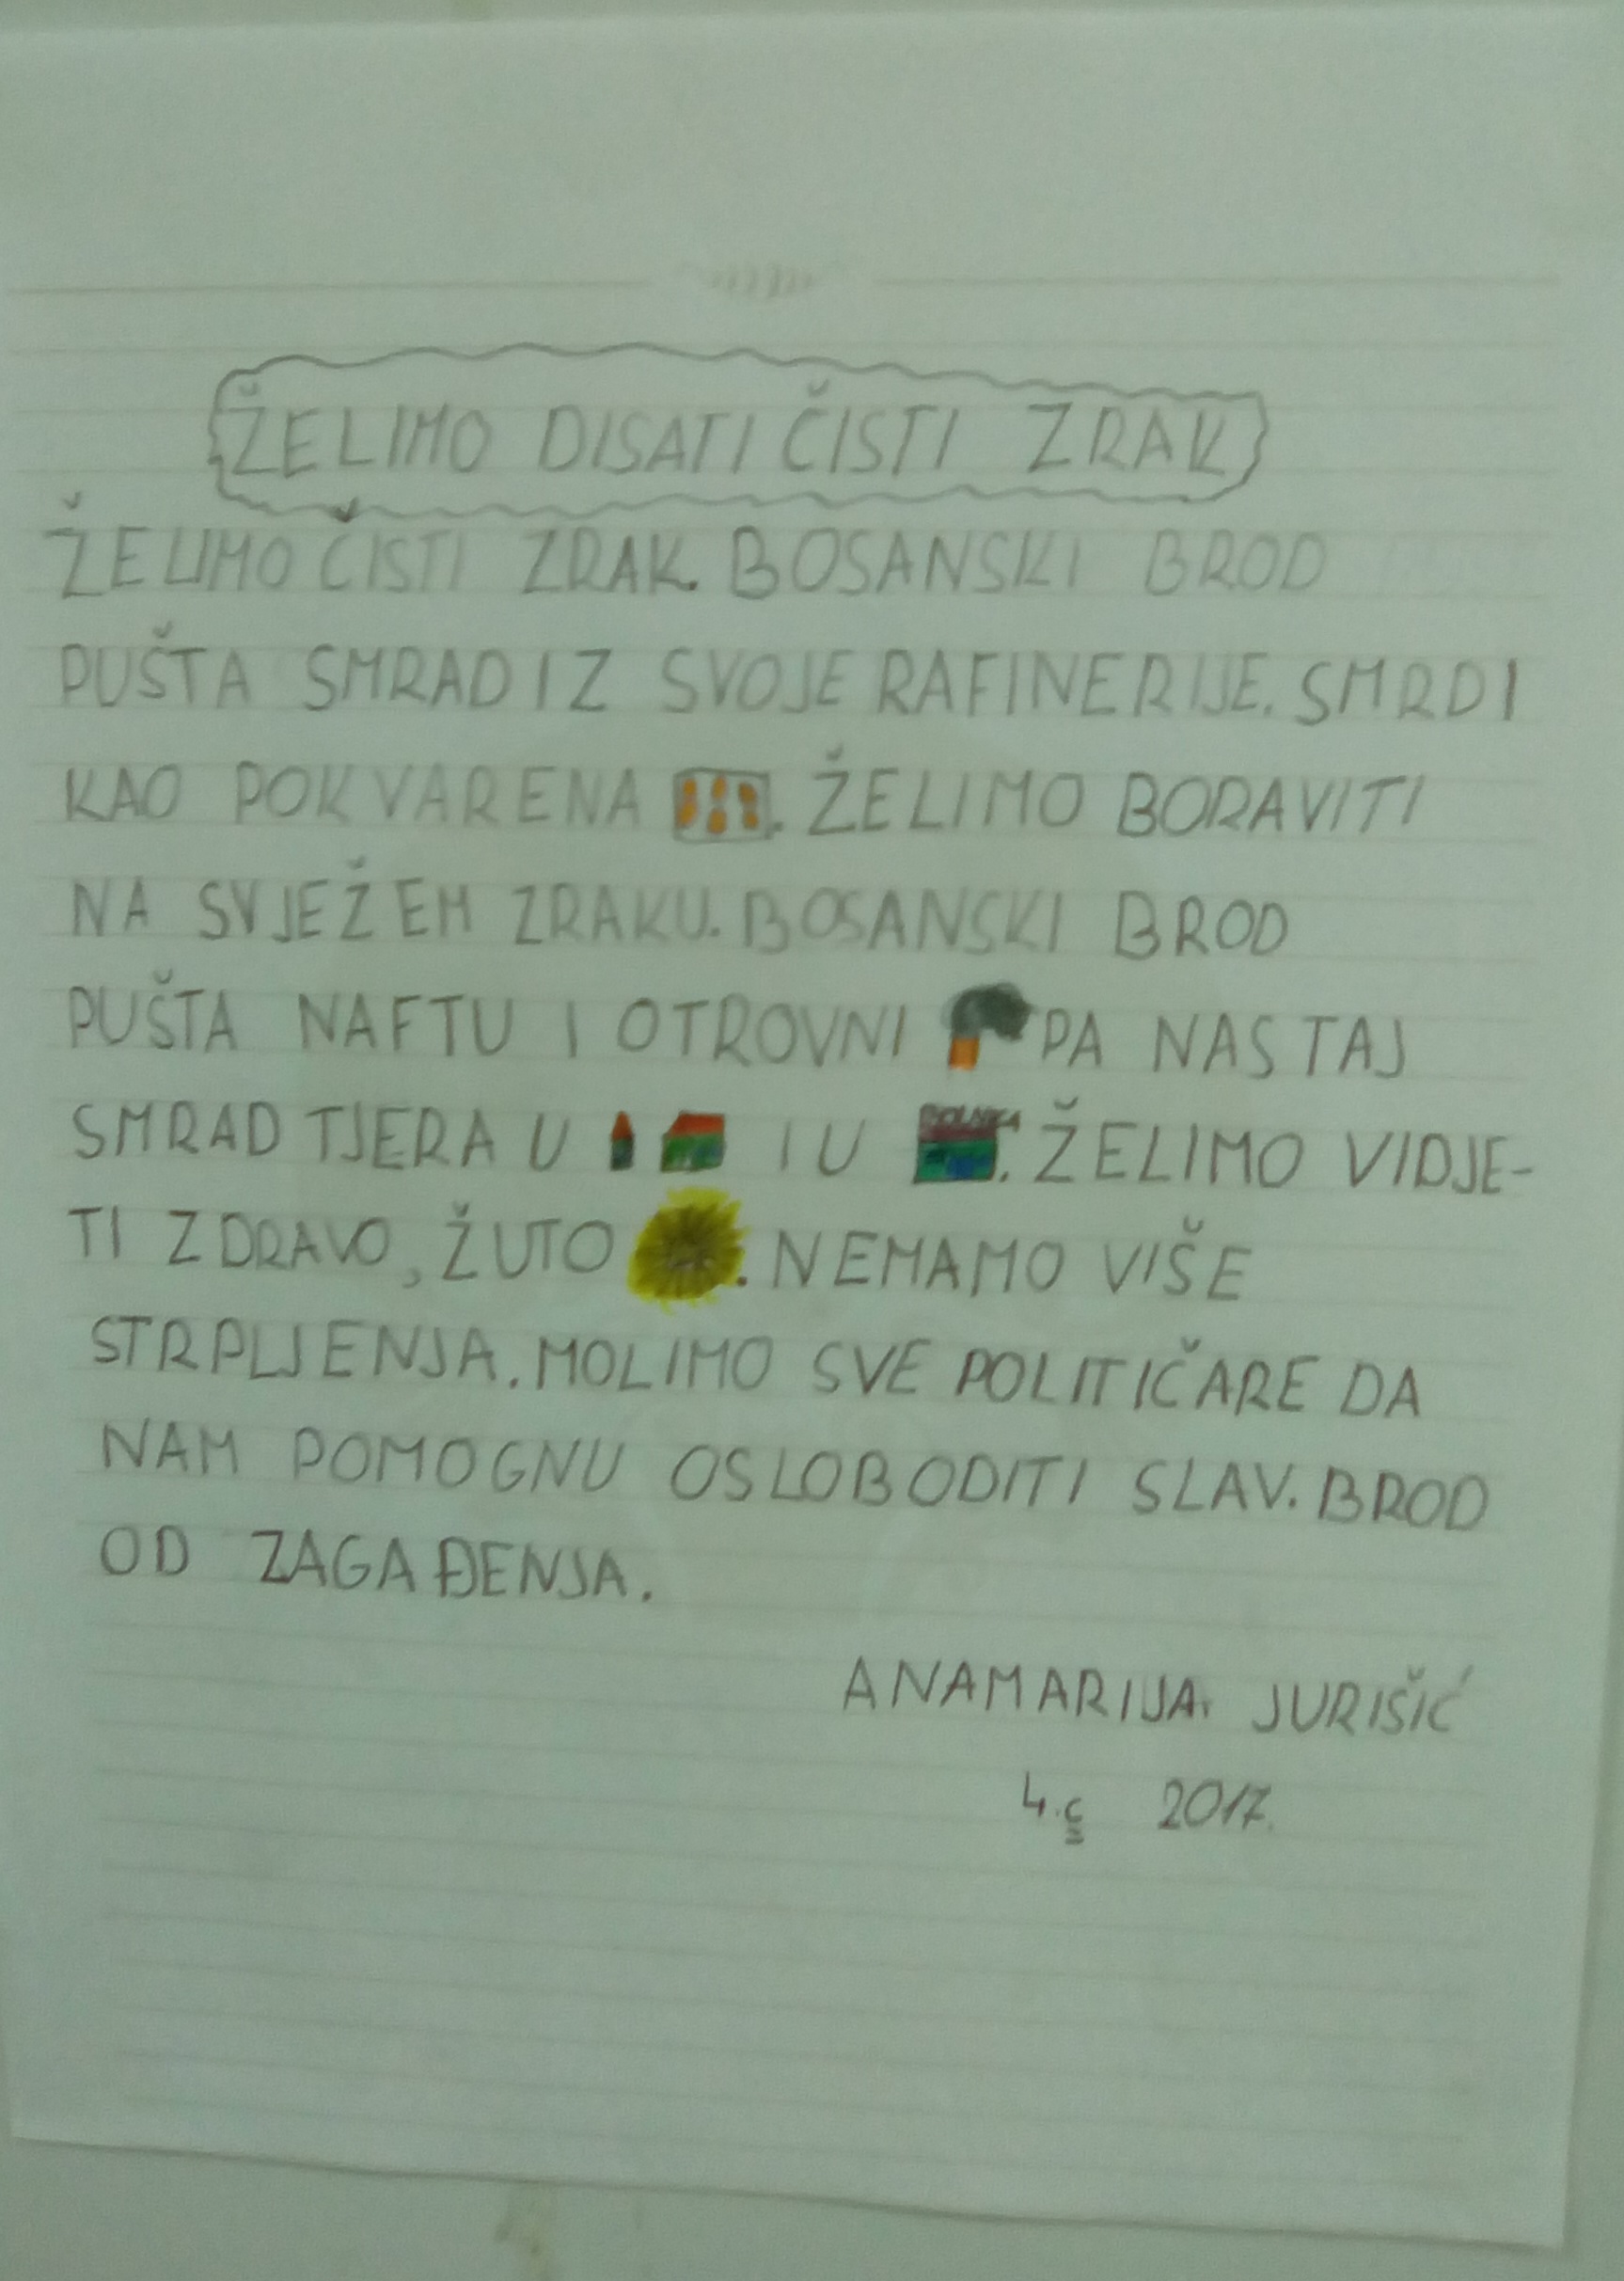 ŽELIMO DISATI ČISTI ZRAK
ŽELIMO ČISTI ZRAK. BOSANSKI BROD
PUŠTA SMRAD IZ SVOJE RAFINERIJE. SMRDI
KAO POKVARENA . ŽELIMO BORAVITI
NA SVJEŽEM ZRAKU. BOSANSKI BROD
PUŠTA NAFTU I OTROVNI PA NAS TAJ
SMRAD TJERA U I U . ŽELIMO VIDJE-
TI ZDRAVO, ŽUTO . NEMAMO VIŠE
STRPLJENJA. MOLIMO SVE POLITIČARE DA
NAM POMOGNU OSLOBODITI SLAV. BROD
OD ZAGAĐENJA.
ANAMARIJA JURIŠIĆ
4.c 2017.